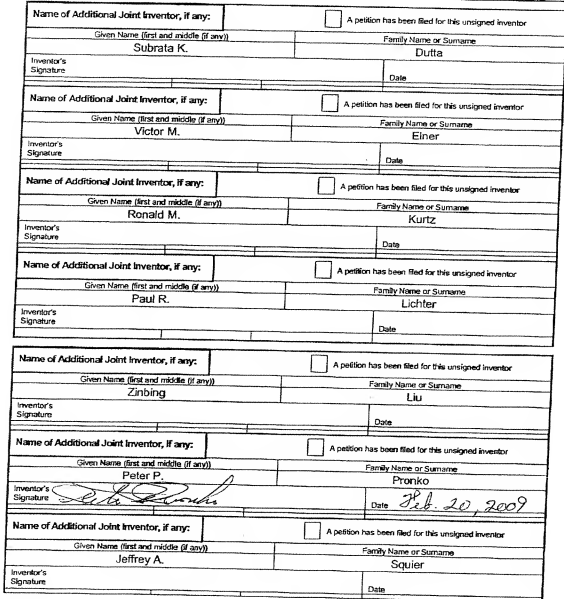 Name of Additional Joint Inventor, if any: A petition has been filed for this unsigned inventor
Given Name (first and middle (if any)) Family Name or Surname
Subrata K. Dutta
Inventor's
Signature Date
Name of Additional Joint Inventor, if any: A petition has been filed for this unsigned inventor
Given Name (first and middle (if any)) Family Name or Surname
Victor M. Elner
Inventor's
Signature Date
Name of Additional Joint Inventor, if any: A petition has been filed for this unsigned inventor
Given Name (first and middle (if any)) Family Name or Surname
Ronald M. Kurtz
Inventor's
Signature Date
Name of Additional Joint Inventor, if any: A petition has been filed for this unsigned inventor
Given Name (first and middle (if any)) Family Name or Surname
Paul R. Lichter
Inventor's
Signature Date
Name of Additional Joint Inventor, if any: A petition has been filed for this unsigned inventor
Given Name (first and middle (if any)) Family Name or Surname
Zinbing Liu
Inventor's
Signature Date
Name of Additional Joint Inventor, if any: A petition has been filed for this unsigned inventor
Given Name (first and middle (if any)) Family Name or Surname
Peter P. Pronko
Inventor's
Signature Peter Pronko Date Feb. 20, 2009
Name of Additional Joint Inventor, if any: A petition has been filed for this unsigned inventor
Given Name (first and middle (if any)) Family Name or Surname
Jeffrey A. Squier
Inventor's
Signature Date